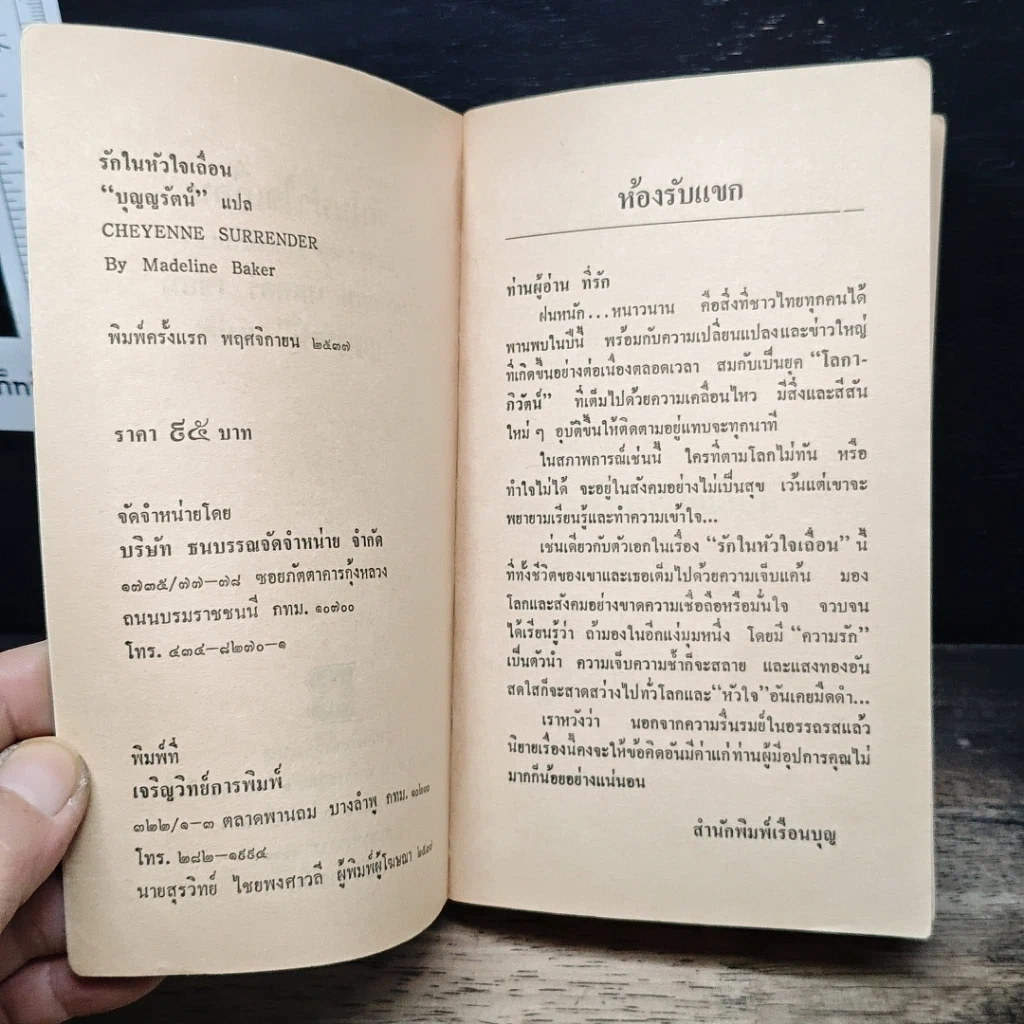 รักในหัวใจเถื่อน
“บุญญรัตน์” แปล
CHEYENNE SURRENDER
By Madeline Baker
พิมพ์ครั้งแรก พฤศจิกายน ๒๕๓๗
ราคา ๙๕ บาท
จัดจำหน่ายโดย
บริษัท ธนบรรณจัดจำหน่าย จำกัด
๑๗๓๕/๗๗—๗๘ ซอยภัตตาคารกุ้งหลวง
ถนนบรมราชชนนี กทม. ๑๐๗๐๐
โทร. ๔๓๔—๘๒๗๐—๑
พิมพ์ที่
เจริญวิทย์การพิมพ์
๓๒๒/๑—๓ ตลาดพานถม บางลำพู กทม. ๑๐๒๐๐
โทร. ๒๘๒—๑๙๙๔
นายสุรวิทย์ ไชยพงศาวลี ผู้พิมพ์ผู้โฆษณา ๒๕๓๗
ห้องรับแขก
ท่านผู้อ่าน ที่รัก
ฝนหนัก...หนาวนาน คือสิ่งที่ชาวไทยทุกคนได้
พานพบในปีนี้ พร้อมกับความเปลี่ยนแปลงและข่าวใหญ่
ที่เกิดขึ้นอย่างต่อเนื่องตลอดเวลา สมกับเป็นยุค “โลกา-
ภิวัตน์” ที่เต็มไปด้วยความเคลื่อนไหว มีสิ่งและสีสัน
ใหม่ ๆ อุบัติขึ้นให้ติดตามอยู่แทบจะทุกนาที
ในสภาพการณ์เช่นนี้ ใครที่ตามโลกไม่ทัน หรือ
ทำใจไม่ได้ จะอยู่ในสังคมอย่างไม่เป็นสุข เว้นแต่เขาจะ
พยายามเรียนรู้และทำความเข้าใจ...
เช่นเดียวกับตัวเอกในเรื่อง “รักในหัวใจเถื่อน” นี้
ที่ทั้งชีวิตของเขาและเธอเต็มไปด้วยความเจ็บแค้น มอง
โลกและสังคมอย่างขาดความเชื่อถือหรือมั่นใจ จวบจน
ได้เรียนรู้ว่า ถ้ามองในอีกแง่มุมหนึ่ง โดยมี “ความรัก”
เป็นตัวนำ ความเจ็บความช้ำก็จะสลาย และแสงทองอัน
สดใสก็จะสาดสว่างไปทั่วโลกและ“หัวใจ”อันเคยมืดดำ...
เราหวังว่า นอกจากความรื่นรมย์ในอรรถรสแล้ว
นิยายเรื่องนี้คงจะให้ข้อคิดอันมีค่าแก่ท่านผู้มีอุปการคุณไม่
มากก็น้อยอย่างแน่นอน
สำนักพิมพ์เรือนบุญ